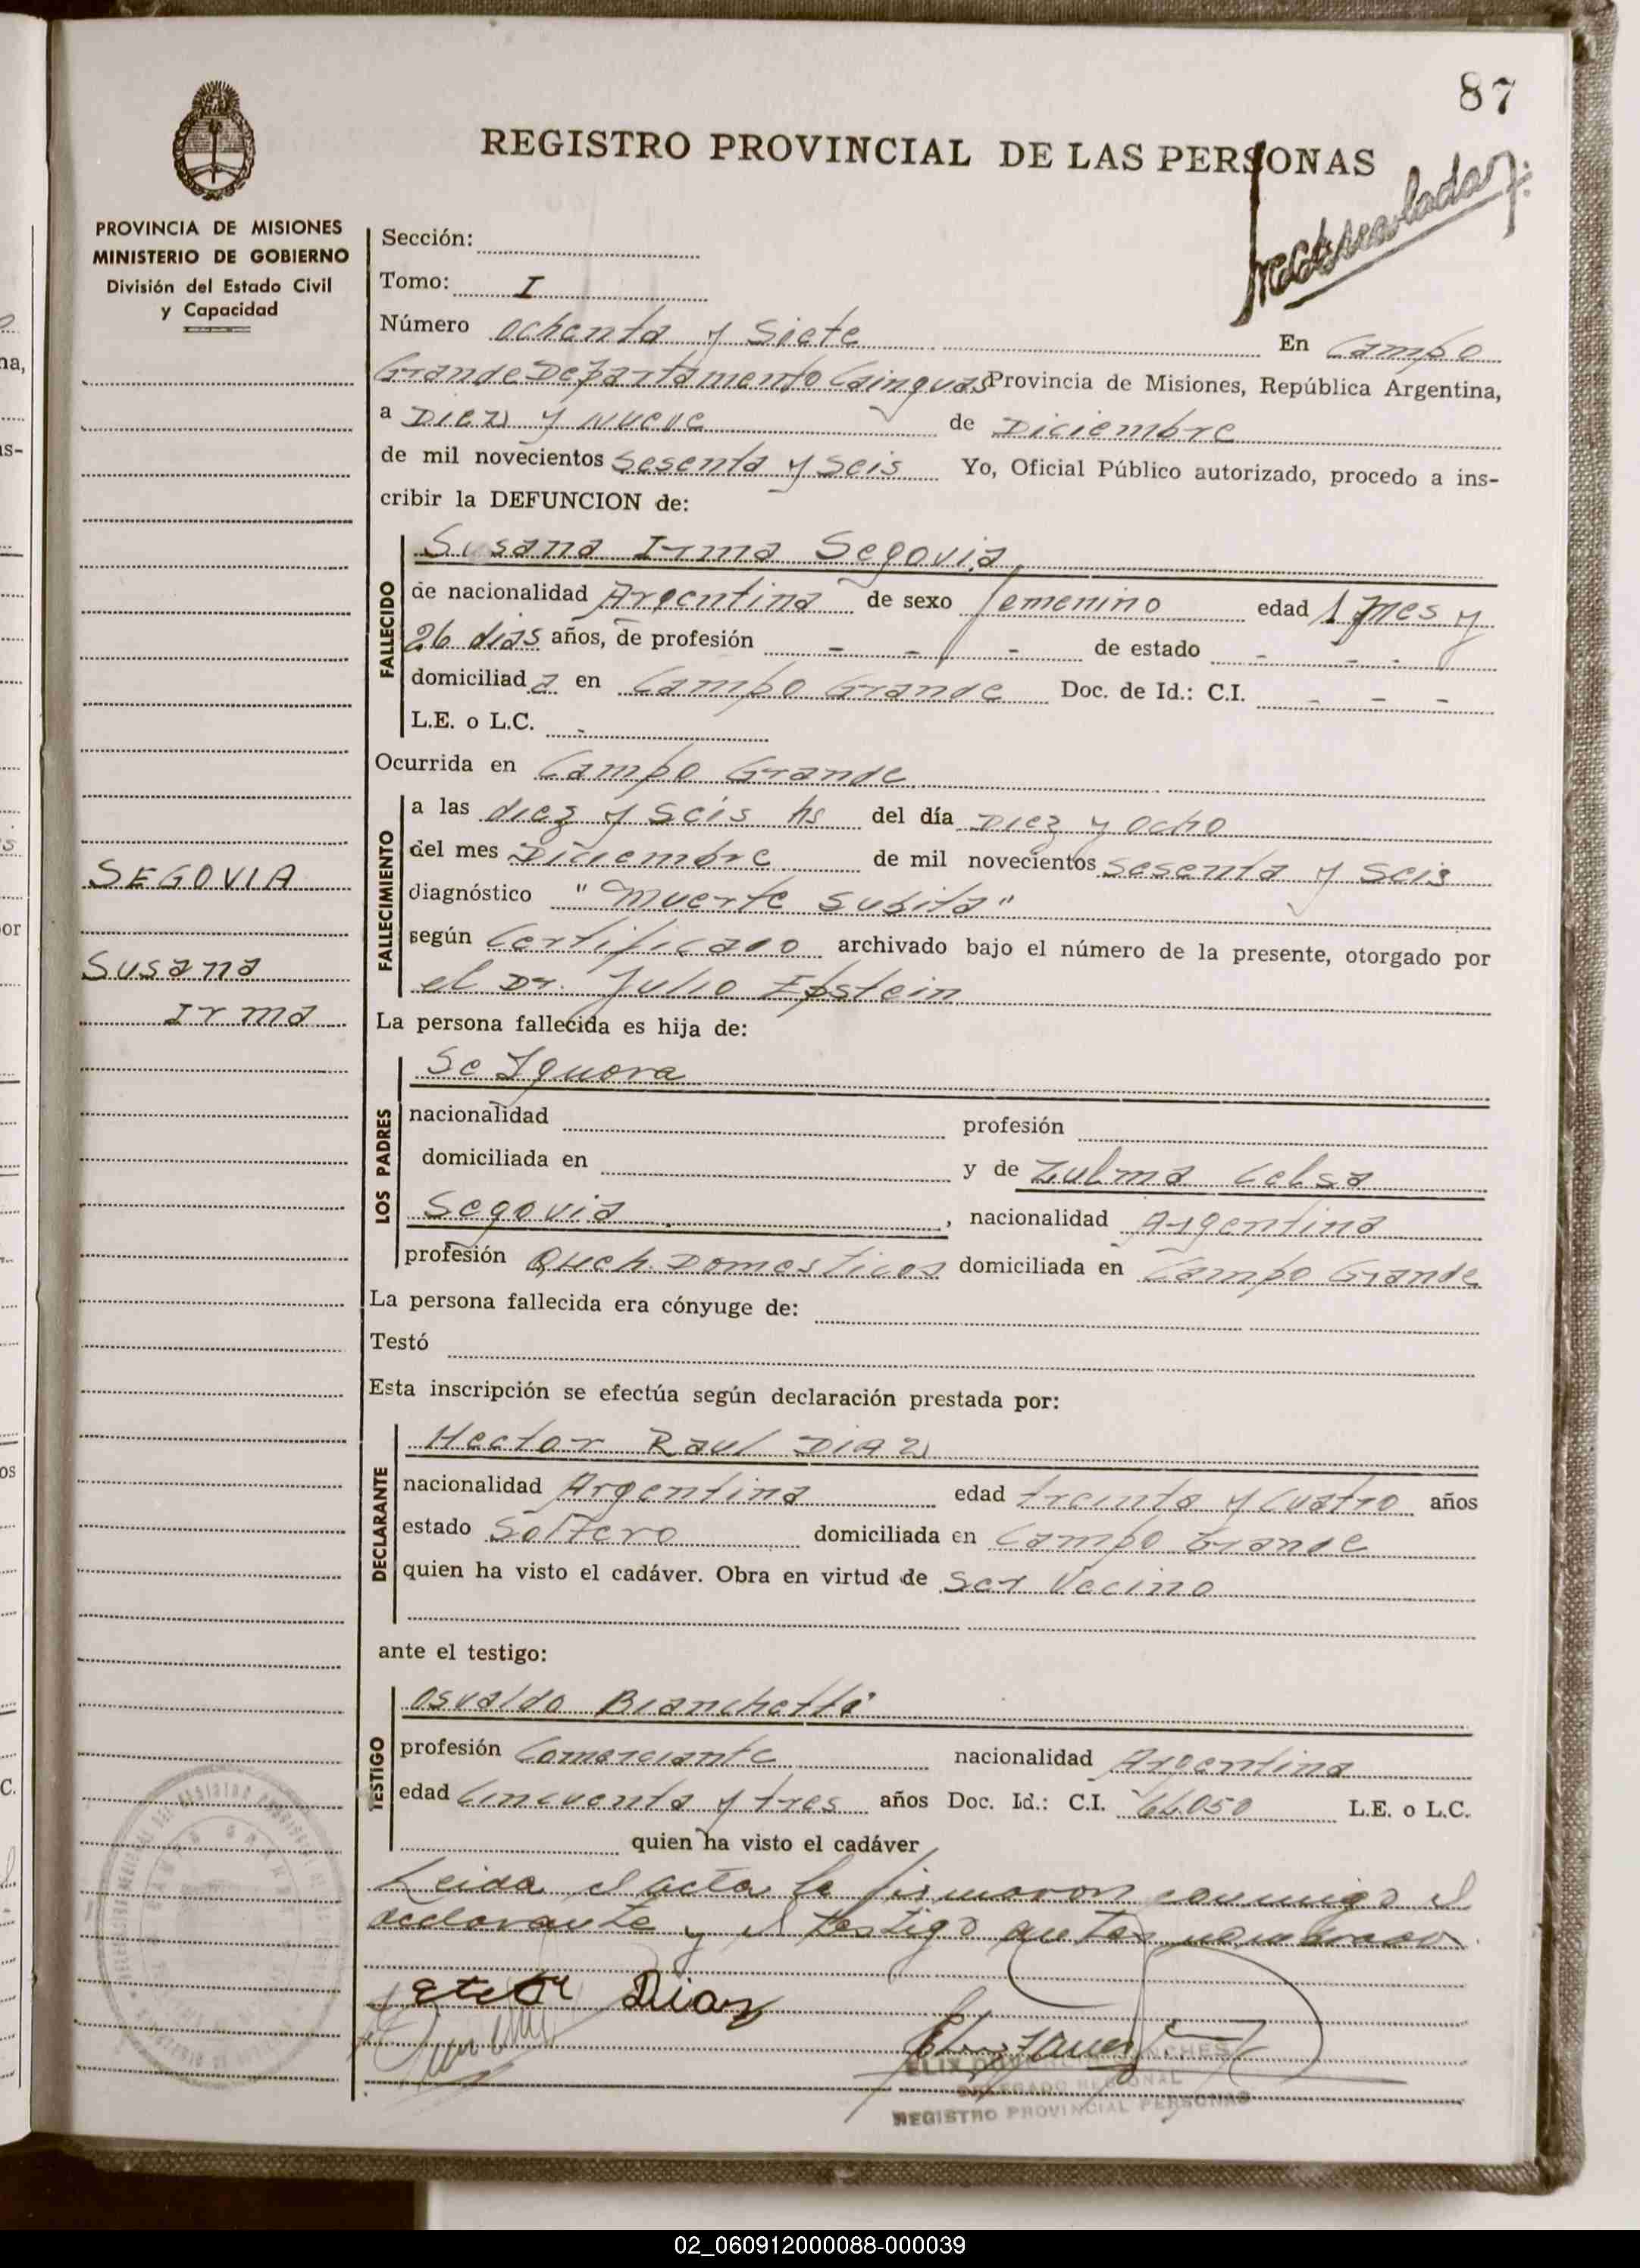 87
REGISTRO PROVINCIAL DE LAS PERSONAS
PROVINCIA DE MISIONES
MINISTERIO DE GOBIERNO
División del Estado Civil
y Capacidad
Sección:
Tomo: I
Número ochenta y Siete En Campo
Grande Departamento Cainguas Provincia de Misiones, República Argentina,
a Diez y Nueve de Diciembre
de mil novecientos Sesenta y Seis Yo, Oficial Público autorizado, procedo a ins-
cribir la DEFUNCION de:
FALLECIDO
Susana Irma Segovia
de nacionalidad Argentina de sexo femenino edad 1 mes y
26 dias años, de profesión - - - de estado - - -
domiciliad a en Campo Grande Doc. de Id.: C.I. - - -
L.E. o L.C. -
Ocurrida en Campo Grande
FALLECIMIENTO
a las diez y seis hs del día Diez y ocho
del mes Diciembre de mil novecientos sesenta y seis
diagnóstico "Muerte Subita"
según Certificado archivado bajo el número de la presente, otorgado por
el Dr. Julio Epstein
SEGOVIA
Susana
Irma
La persona fallecida es hija de:
LOS PADRES
Se Ignora
nacionalidad profesión
domiciliada en y de Zulma Celsa
Segovia , nacionalidad Argentina
profesión Queh. Domesticos domiciliada en Campo Grande
La persona fallecida era cónyuge de:
Testó
Esta inscripción se efectúa según declaración prestada por:
DECLARANTE
Hector Raul DIAZ
nacionalidad Argentina edad treinta y cuatro años
estado Soltero domiciliada en Campo Grande
quien ha visto el cadáver. Obra en virtud de Ser Vecino
ante el testigo:
TESTIGO
Osvaldo Bianchetti
profesión Comerciante nacionalidad Argentina
edad Cincuenta y tres años Doc. Id.: C.I. L.E. o L.C.
quien ha visto el cadáver
Leida el acta la firmaron conmigo el
declarante y el testigo antes nombrados
Diaz
DELEGADO REGIONAL
REGISTRO PROVINCIAL PERSONAS
02_060912000088-000039